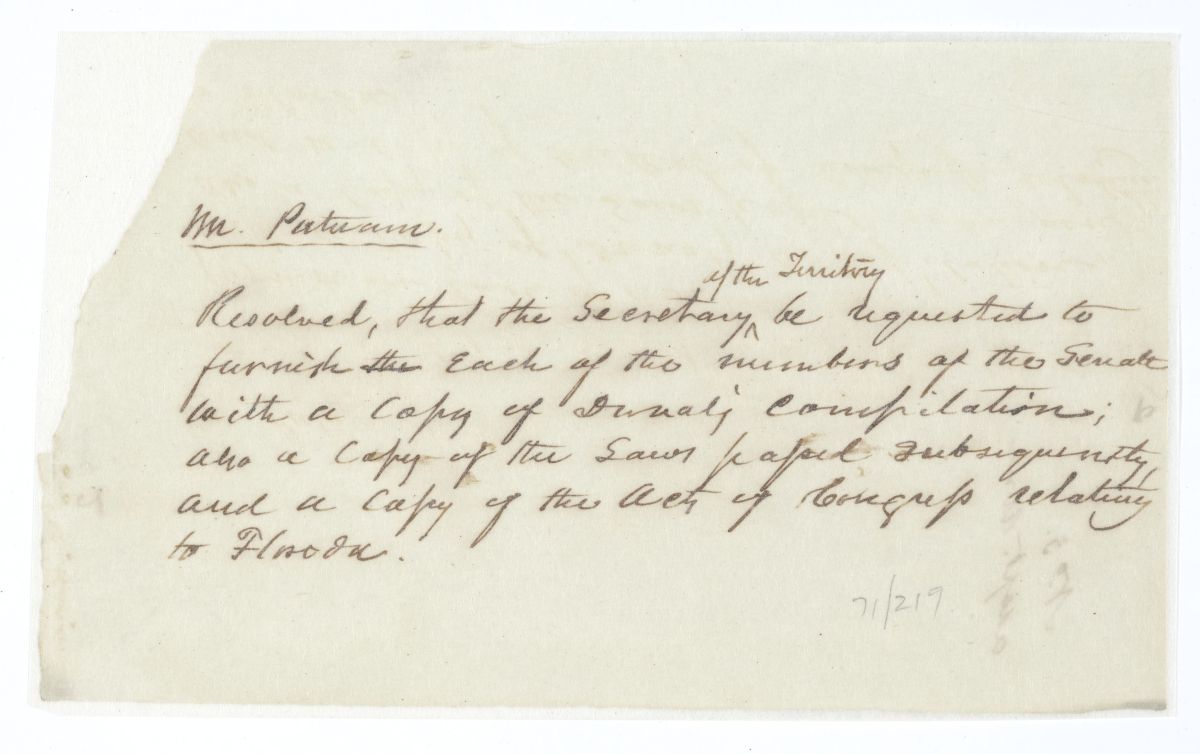 Mr. Putnam.
of the Territory
Resolved, that the Secretary ^ be requested to
furnish the Each of the members of the Senate
with a Copy of Duval's Compilation;
also a Copy of the Laws passed subsequently,
and a Copy of the Acts of Congress relating
to Florida.
71/219.